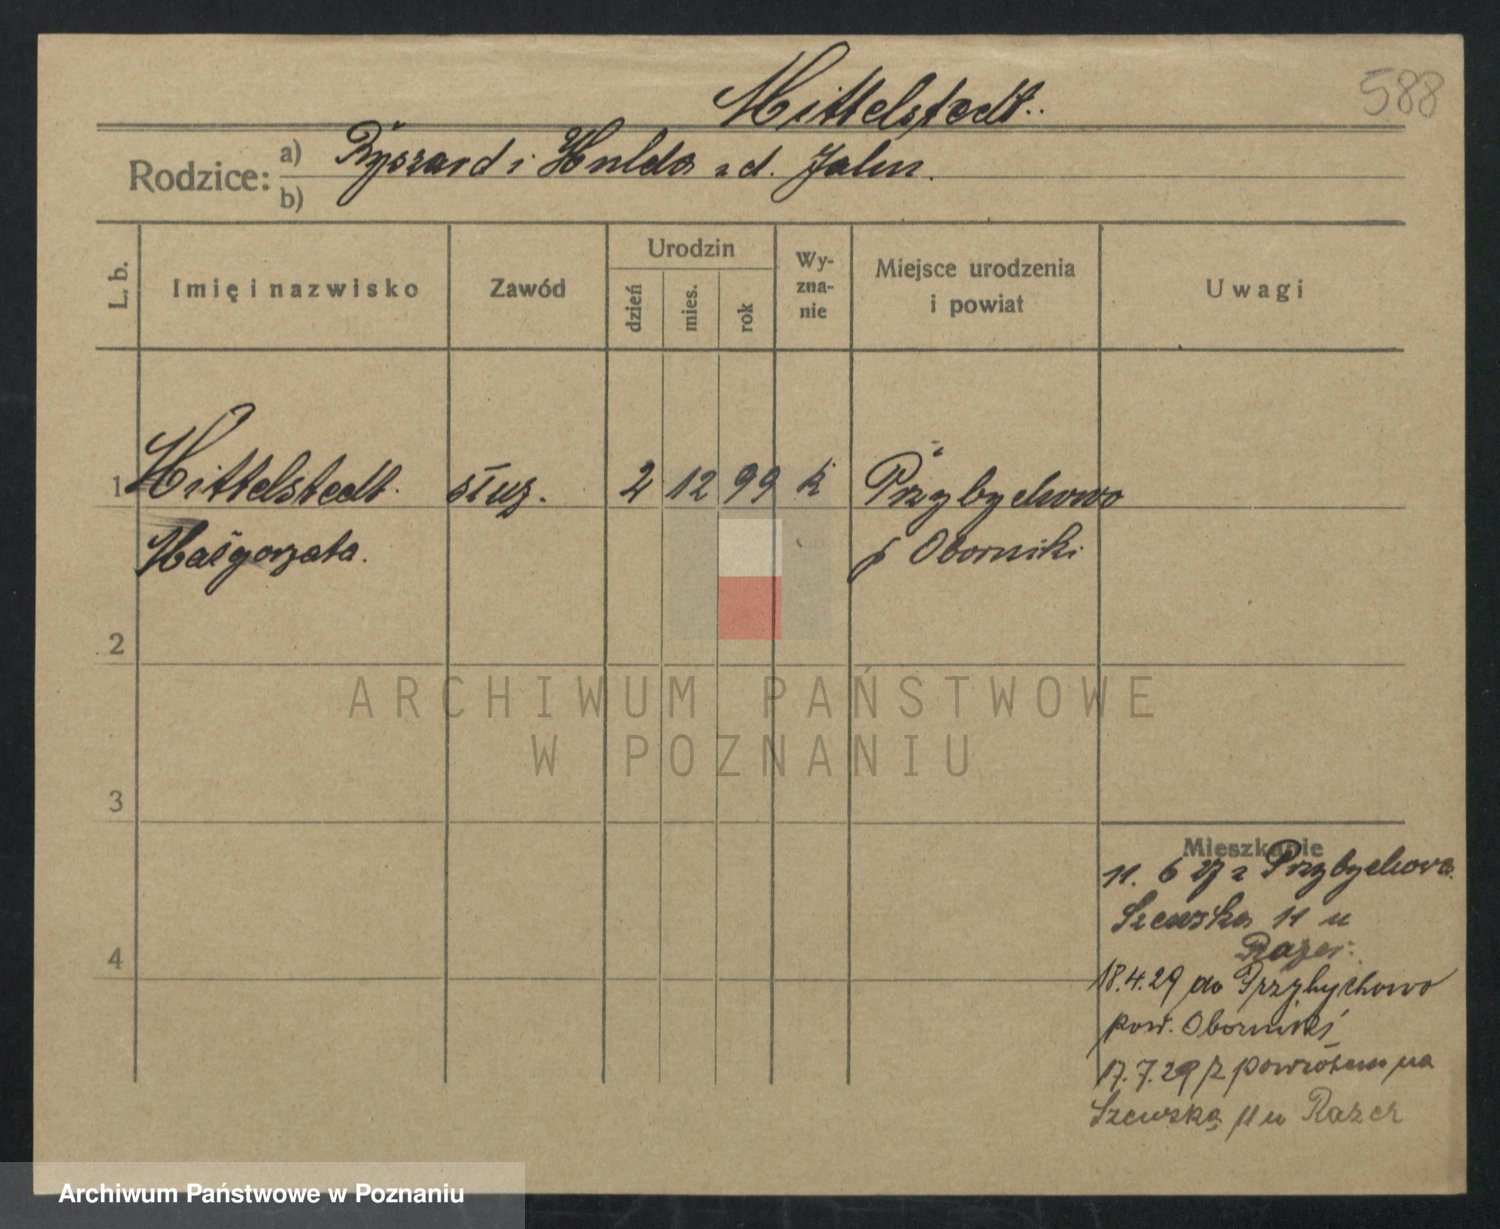 588
Mittelstedt.
Rodzice: a) Ryszard i Hulda z d. Jahn.
b)
L. b. Imię i nazwisko Zawód Urodzin dzień mies. rok Wy-zna-nie Miejsce urodzenia i powiat Uwagi
1 Mittelstedt służ. 2 12 99 k Przybychowo
Małgorzata. p Oborniki
2
ARCHIWUM PAŃSTWOWE
W POZNANIU
3
Mieszkanie
11. 6 27 z Przybychowa
Szewska 11 u
4
18.4.29 do Przybychowo
pow. Oborniki
17.7.29 z powrotem na
Szewską 11 u Razer
Archiwum Państwowe w Poznaniu